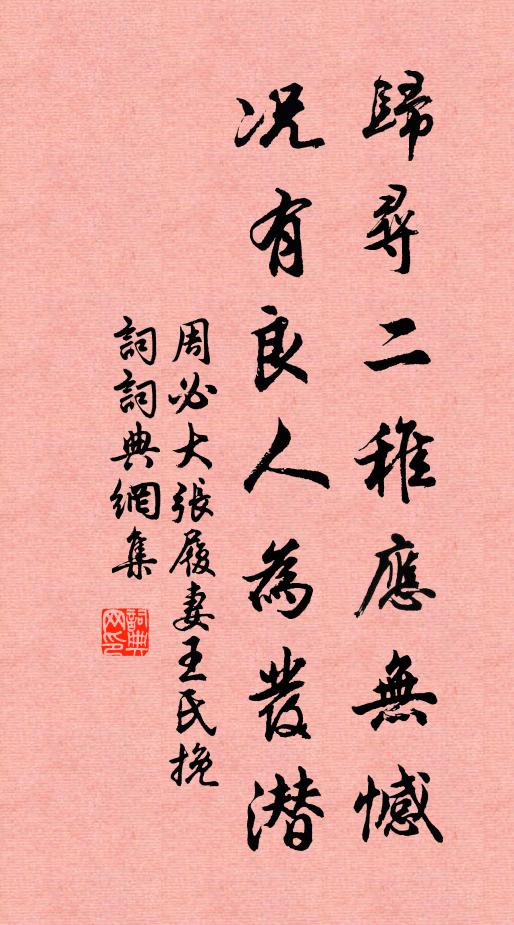 歸尋二稚應無憾
况有良人為發潛
周必大張履妻王氏挽
詞詞典網集
詞典網印